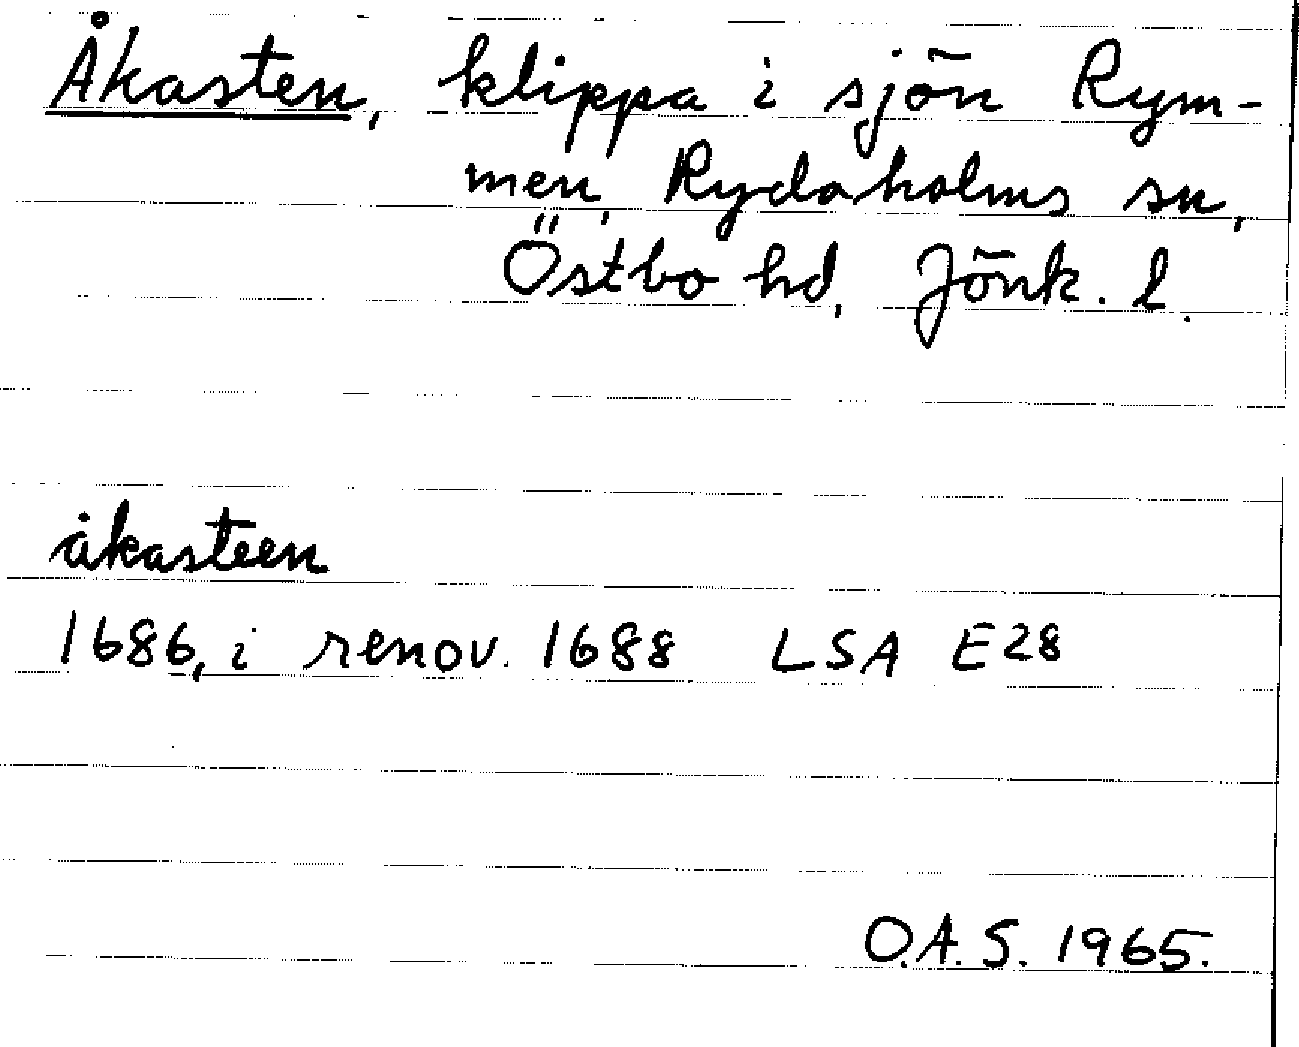 Åkasten, klippa i sjön Rym-
men, Rydaholms sn,
Östbo hd, Jönk. l.
åkasteen
1686, i renov. 1688 LSA E28
O.A.S. 1965.